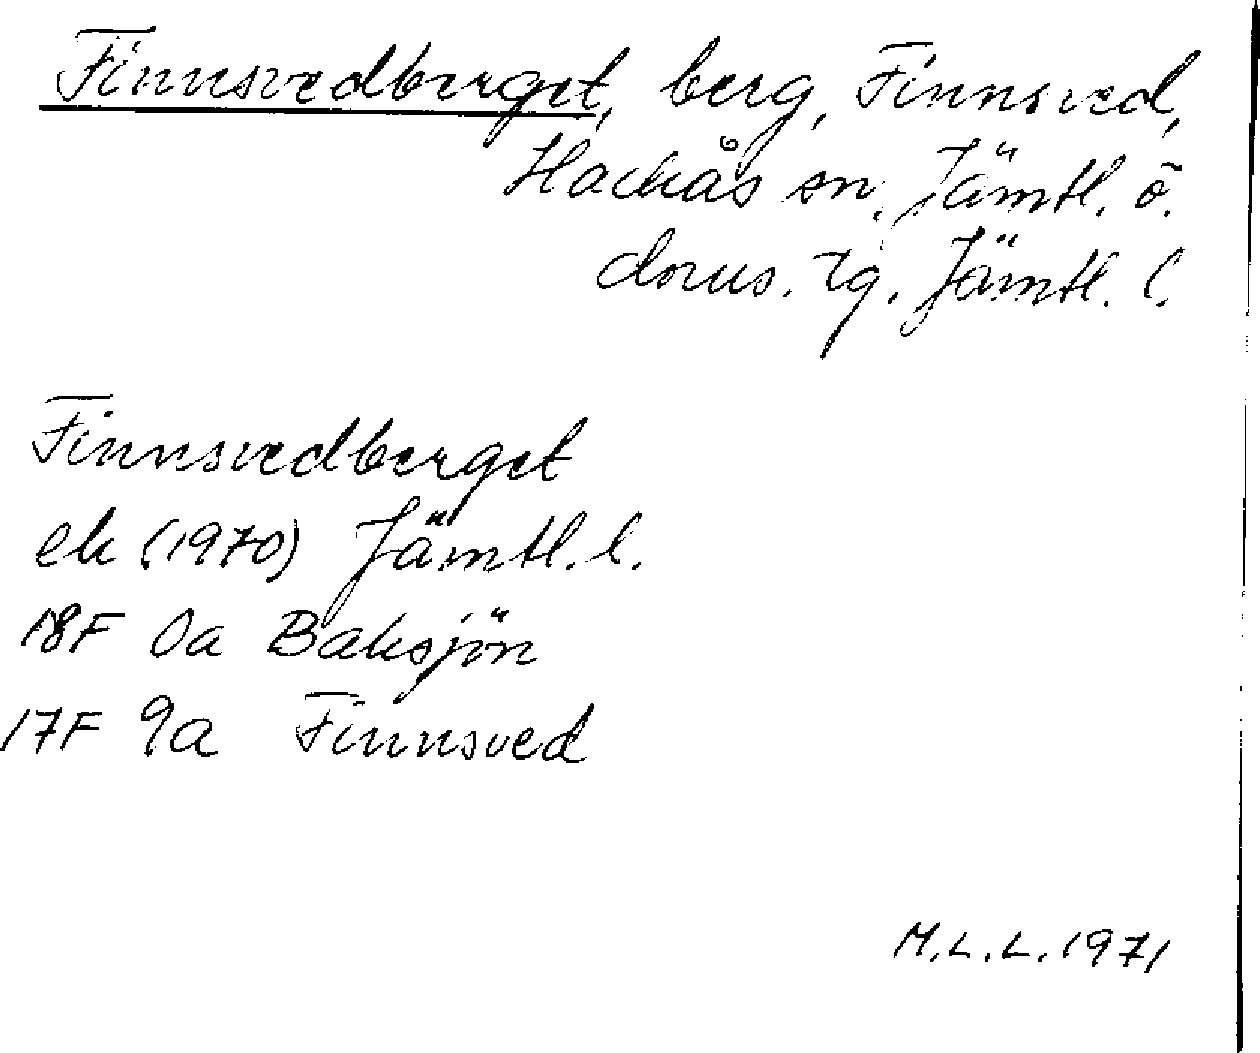 Finnsvedberget, berg, Finnsved,
Hackås sn, Jämtl. ö.
doms. tg. Jämtl. l.
Finnsvedberget
ek (1970) Jämtl. l.
18F 0a Baksjön
17F 9a Finnsved
M.L.L. 1971